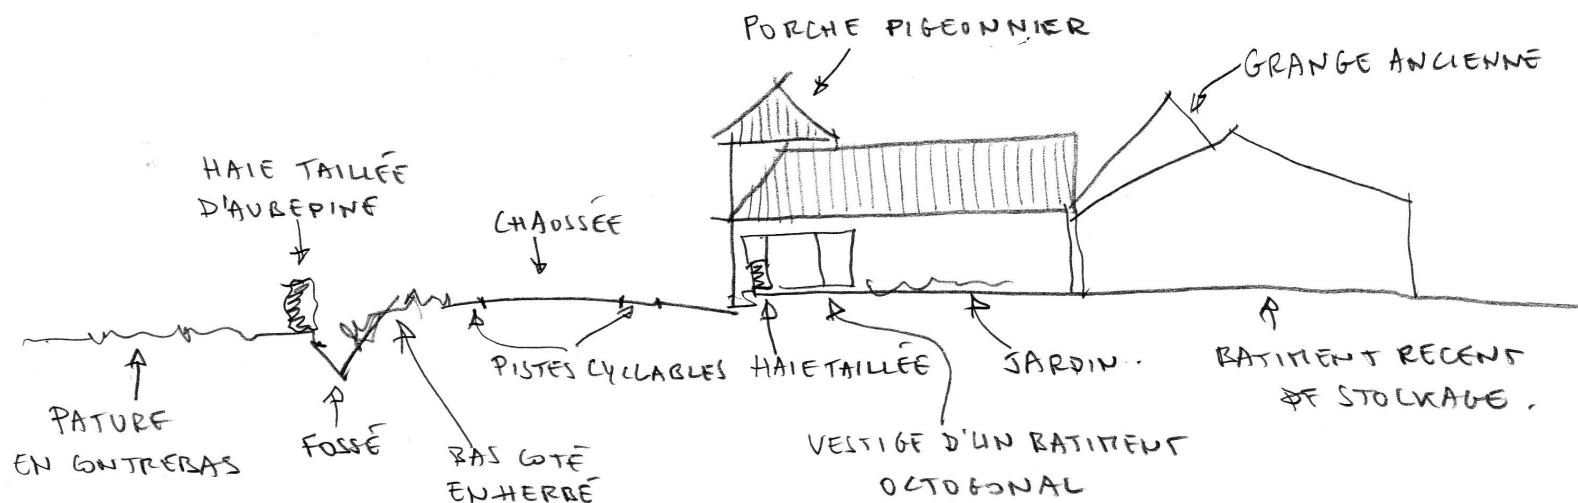 PORCHE PIGEONNIER
GRANGE ANCIENNE
HAIE TAILLÉE
D'AUBEPINE
CHAUSSÉE
PISTES CYCLABLES
HAIE TAILLÉE
JARDIN.
BATIMENT RECENT
DE STOCKAGE.
PATURE
EN CONTREBAS
FOSSÉ
BAS COTÉ
ENHERBÉ
VESTIGE D'UN BATIMENT
OCTOGONAL